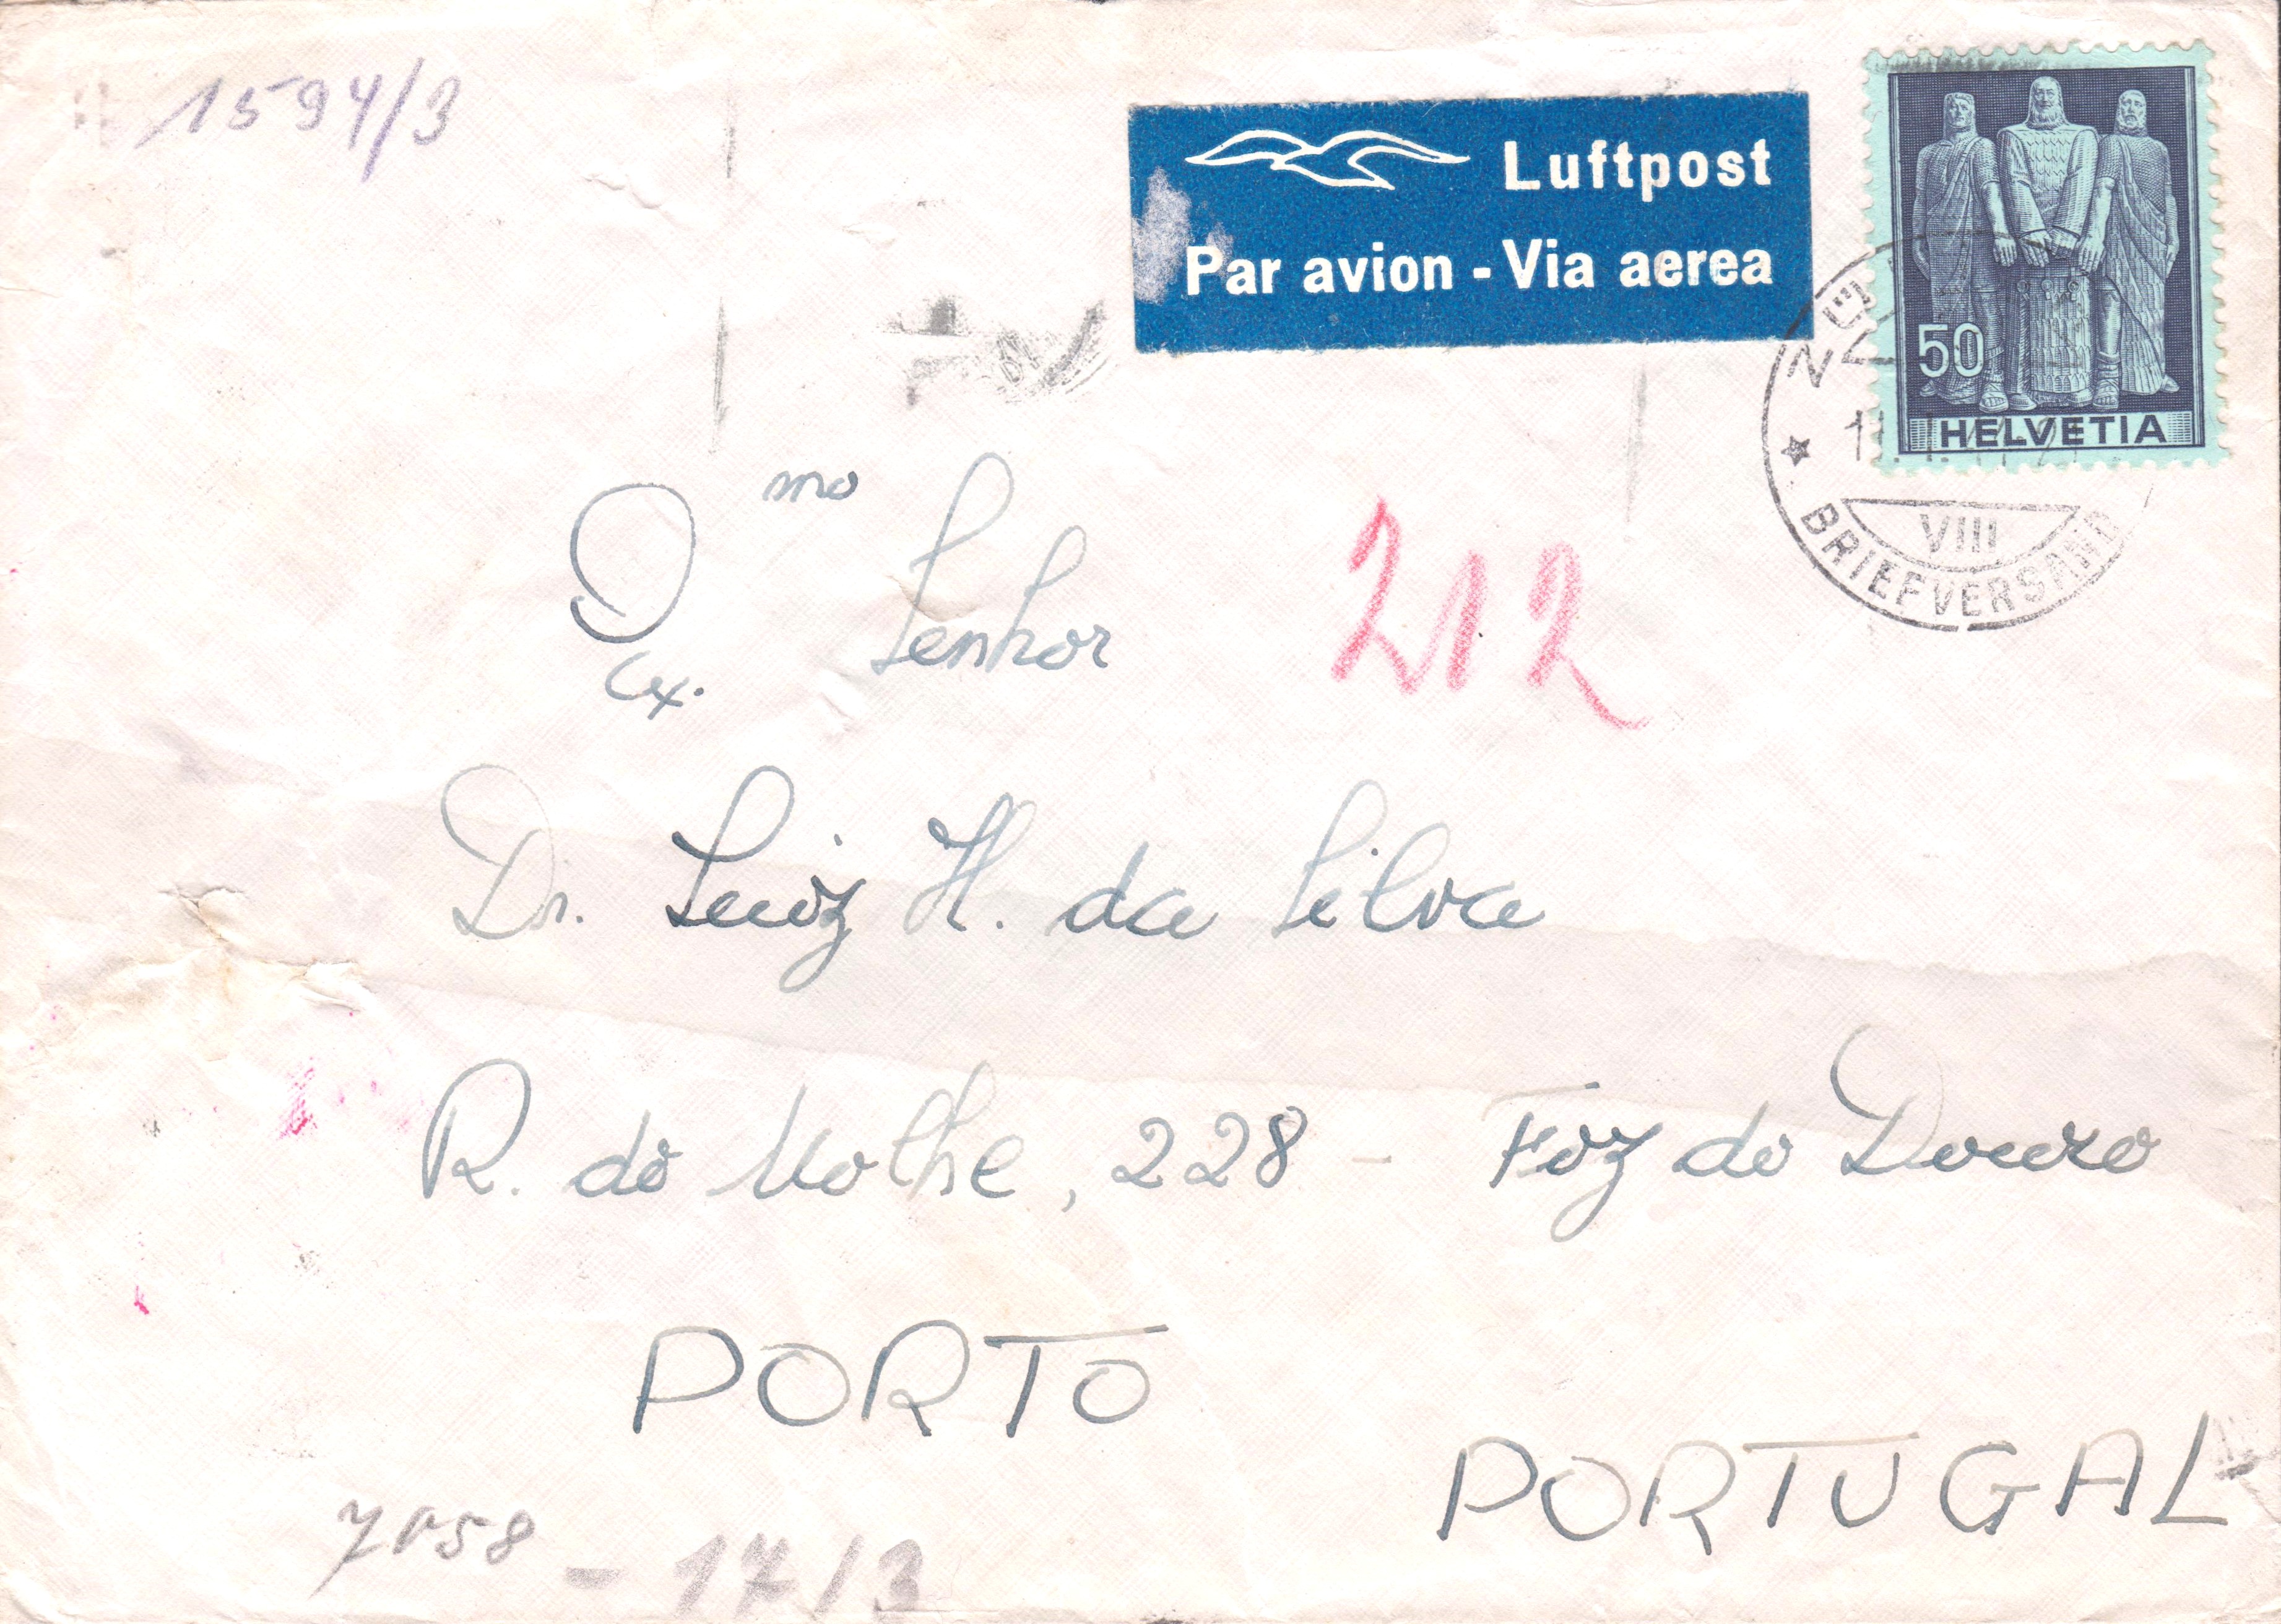 1594/3
Luftpost
Par avion - Via aerea
50
HELVETIA
VIII
BRIEFVERSAND
Ex.mo Senhor
212
Dr. Luiz H. da Silva
R. do Molhe, 228 - Foz do Douro
PORTO
PORTUGAL
7058 - 17/3